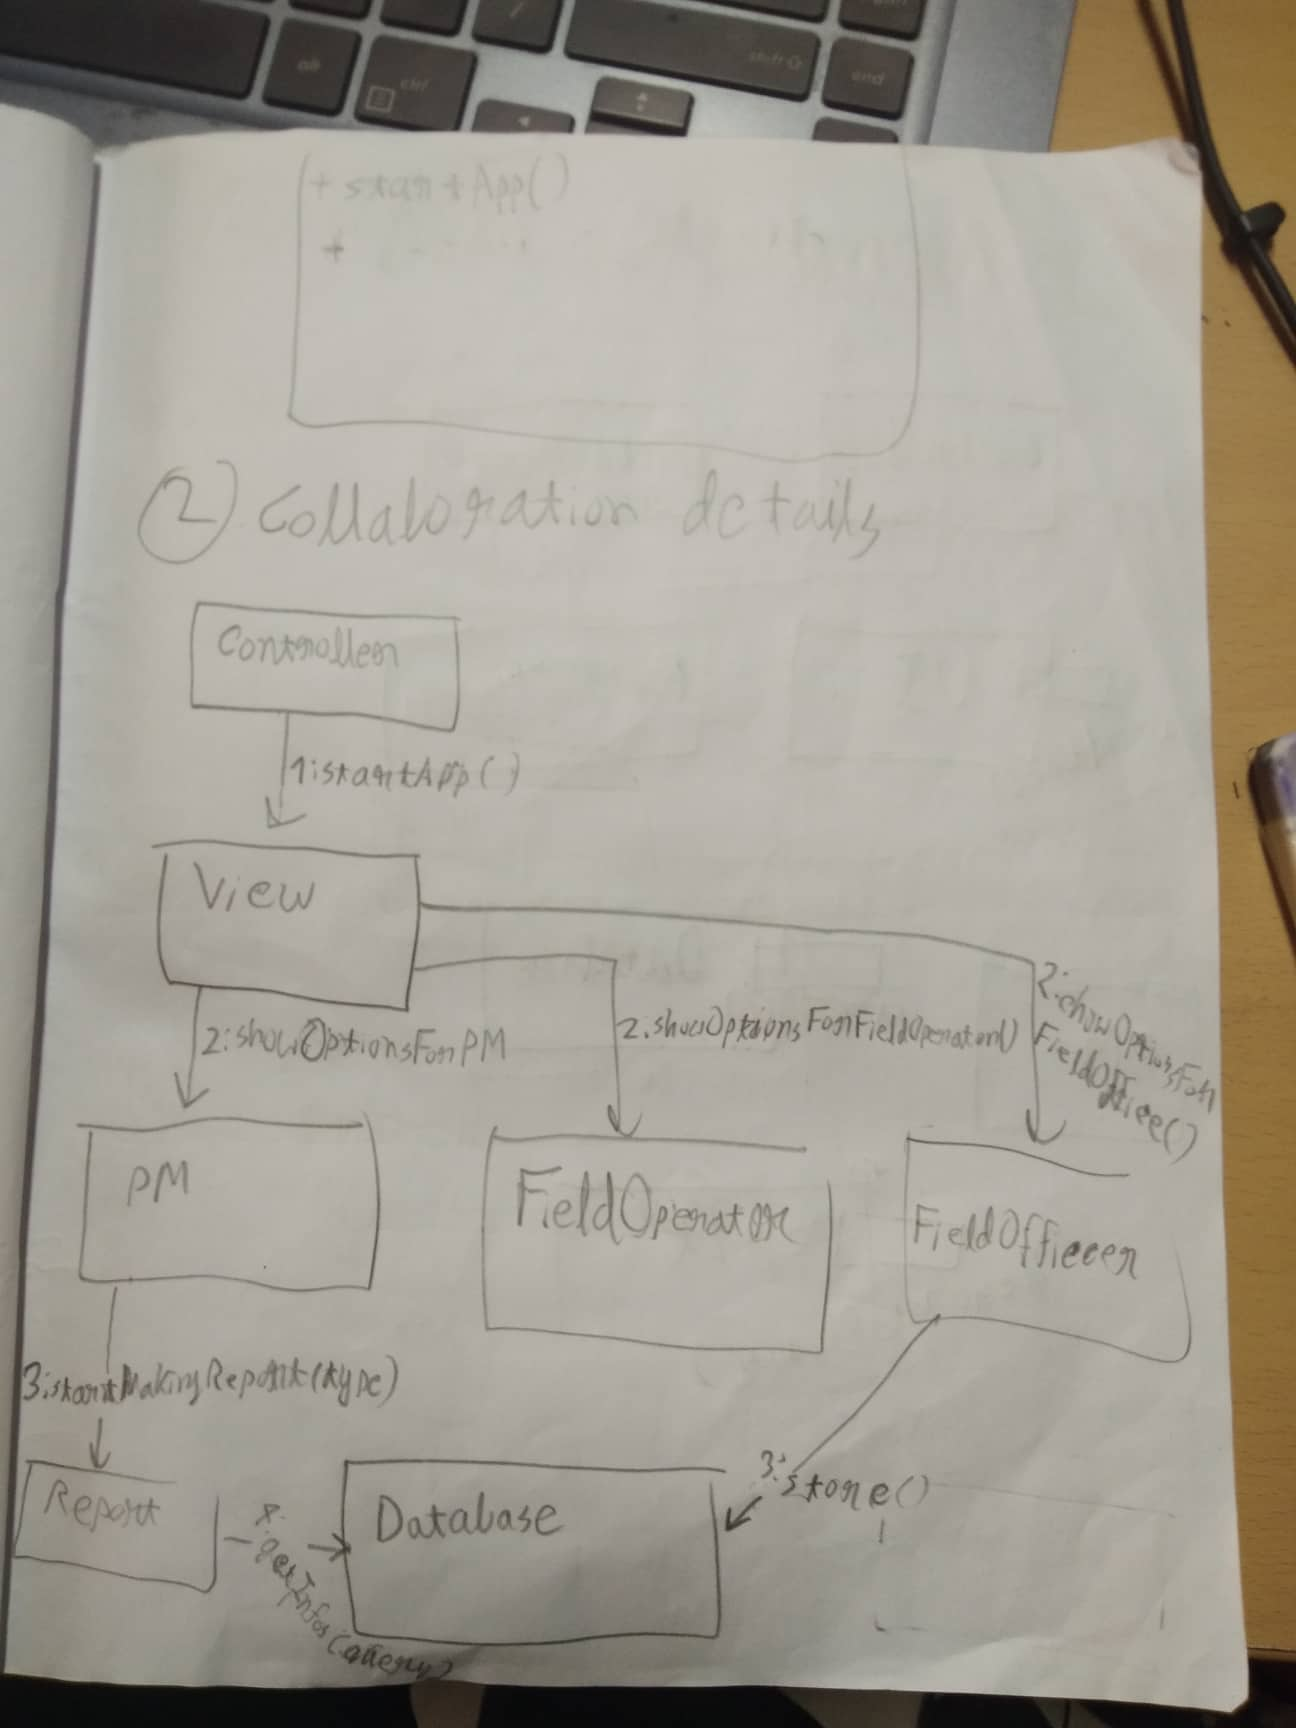 alt
ctrl
shift
end
+ startApp()
+
2) Collaboration details
Controller
1:startApp()
View
2:showOptionsForPM
2:showOptionsForFieldOperator()
2:showOptionsFor
FieldOffiee()
PM
FieldOperator
FieldOffiecer
3:startMakingReport(type)
3:store()
Report
Database
4:
getInfos(